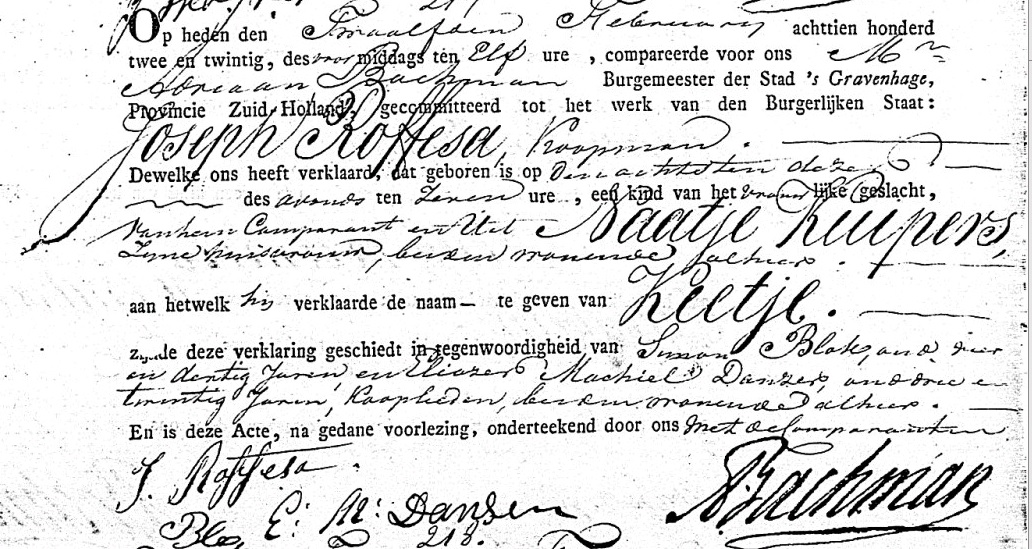 Op heden den Twaalfden February achttien honderd
twee en twintig, des voor middags ten Elf ure , compareerde voor ons Mr
Adriaan Bachman Burgemeester der Stad 's Gravenhage,
Provincie Zuid-Holland, gecommitteerd tot het werk van den Burgerlijken Staat:
Joseph Roffesa, Koopman.
Dewelke ons heeft verklaard, dat geboren is op den achtsten dezer
des avonds ten Zeven ure , een kind van het vrouwlijke geslacht,
van hem Comparant en Uit Naatje Kuipers,
Zyne huisvrouw, beiden wonende alhier.
aan hetwelk hy verklaarde de naam te geven van Keetje.
zijnde deze verklaring geschiedt in tegenwoordigheid van Simon Blok, oud vier
en dertig Jaren, en Eliazer Machiel Danzer, oud drie en
twintig Jaren, Kooplieden, beiden wonende alhier.
En is deze Acte, na gedane voorlezing, onderteekend door ons met de Comparanten
J. Roffesa.
ABachman
Blok E: M: Dansen
218.